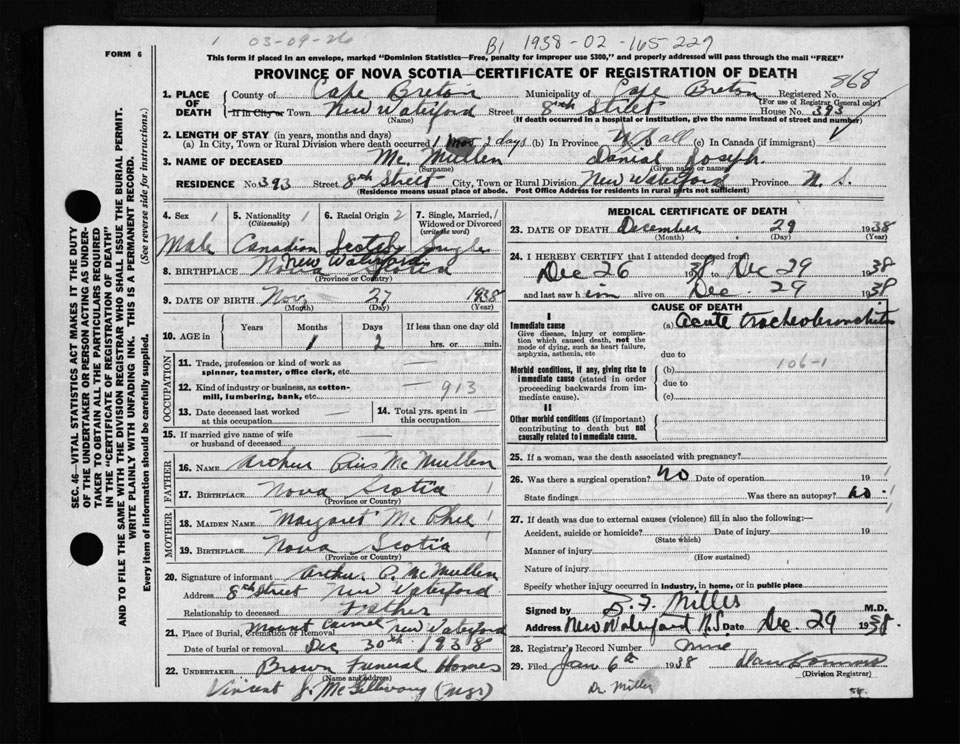 1 03-09-26
B1 1938-02-165-229
FORM 6
This form if placed in an envelope, marked "Dominion Statistics—Free, penalty for improper use $300," and properly addressed will pass through the mail "FREE"
PROVINCE OF NOVA SCOTIA—CERTIFICATE OF REGISTRATION OF DEATH
868
1. PLACE OF DEATH County of Cape Breton Municipality of Cape Breton Registered No.
(For use of Registrar General only)
If in City or Town New Waterford Street 8th Street House No. 393
(Name) (If death occurred in a hospital or institution, give the name instead of street and number)
2. LENGTH OF STAY (in years, months and days)
(a) In City, Town or Rural Division where death occurred 1 mos 2 days (b) In Province all (c) In Canada (if immigrant)
3. NAME OF DECEASED Mc. Mullen Danial Joseph.
(Surname) (Given name or names)
RESIDENCE No. 393 Street 8th Street City, Town or Rural Division New Waterford Province N. S.
(Residence means usual place of abode. Post Office Address for residents in rural parts not sufficient)
SEC. 46—VITAL STATISTICS ACT MAKES IT THE DUTY
OF THE UNDERTAKER OR PERSON ACTING AS UNDER-
TAKER TO OBTAIN ALL THE PARTICULARS REQUIRED
IN THE "CERTIFICATE OF REGISTRATION OF DEATH"
AND TO FILE THE SAME WITH THE DIVISION REGISTRAR WHO SHALL ISSUE THE BURIAL PERMIT.
WRITE PLAINLY WITH UNFADING INK. THIS IS A PERMANENT RECORD.
Every item of information should be carefully supplied. (See reverse side for instructions.)
4. Sex 1 5. Nationality 1 6. Racial Origin 2 7. Single, Married, Widowed or Divorced
(write the word)
Male Canadian Scotch Single
New Waterford
8. BIRTHPLACE Nova Scotia
(Province or Country)
9. DATE OF BIRTH Nov 27 1938
(Month) (Day) (Year)
10. AGE in Years Months Days If less than one day old
1 2 hrs. or min.
OCCUPATION
11. Trade, profession or kind of work as
spinner, teamster, office clerk, etc. —
12. Kind of industry or business, as cotton-
mill, lumbering, bank, etc. — 913
13. Date deceased last worked
at this occupation — 14. Total yrs. spent in
this occupation —
15. If married give name of wife
or husband of deceased —
FATHER
16. NAME Arthur Pius Mc Mullen
17. BIRTHPLACE Nova Scotia 1
(Province or Country)
MOTHER
18. MAIDEN NAME Margaret Mc Phee 1
19. BIRTHPLACE Nova Scotia 1
(Province or Country)
20. Signature of informant Arthur P. Mc Mullen
Address 8th Street New Waterford
Relationship to deceased Father
21. Place of Burial, Cremation or Removal Mount Carmel New Waterford
Date of burial or removal Dec 30th 1938
22. UNDERTAKER Brown Funeral Homes
(Name and address)
Vincent J. McGillivary (mgr)
MEDICAL CERTIFICATE OF DEATH
23. DATE OF DEATH December 29 1938
(Month) (Day) (Year)
24. I HEREBY CERTIFY that I attended deceased from:
Dec 26 1938 to Dec 29 1938
and last saw him alive on Dec. 29 1938
CAUSE OF DEATH
I
Immediate cause (a) Acute tracheobronchitis
Give disease, injury or complication which caused death, not the mode of dying, such as heart failure, asphyxia, asthenia, etc
due to
Morbid conditions, if any, giving rise to immediate cause (stated in order proceeding backwards from immediate cause). (b) 106-1
due to
(c)
II
Other morbid conditions (if important) contributing to death but not causally related to immediate cause.
25. If a woman, was the death associated with pregnancy?
26. Was there a surgical operation? No Date of operation 19
State findings Was there an autopsy? No
27. If death due to external causes (violence) fill in also the following:—
Accident, suicide or homicide? Date of injury 19
(State which)
Manner of injury
(How sustained)
Nature of injury
Specify whether injury occurred in industry, in home, or in public place
Signed by S. F. Miller M.D.
Address New Waterford N.S. Date Dec 29 1938.
28. Registrar's Record Number Nine
29. Filed Jan 6th 1938
(Division Registrar)
Dr. Miller